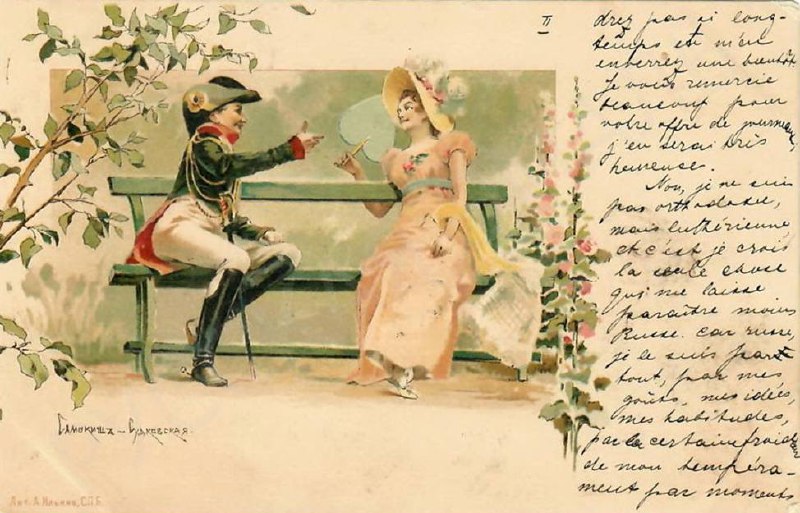 II
drez pas si long-
temps et m'en
enverrez une bientôt.
Je vous remercie
beaucoup pour
votre offre de journaux,
j'en serai très
heureuse.
Non, je ne suis
pas orthodoxe,
mais luthérienne,
et c'est je crois
la seule chose
qui me laisse
paraître moins
Russe. Car russe,
je le suis part
tout, par mes
goûts, mes idées,
mes habitudes,
par la certaine froideur
de mon tempéra-
ment par moments
Самокишъ-Судковская.
Лит. А. Ильина, С.П.Б.